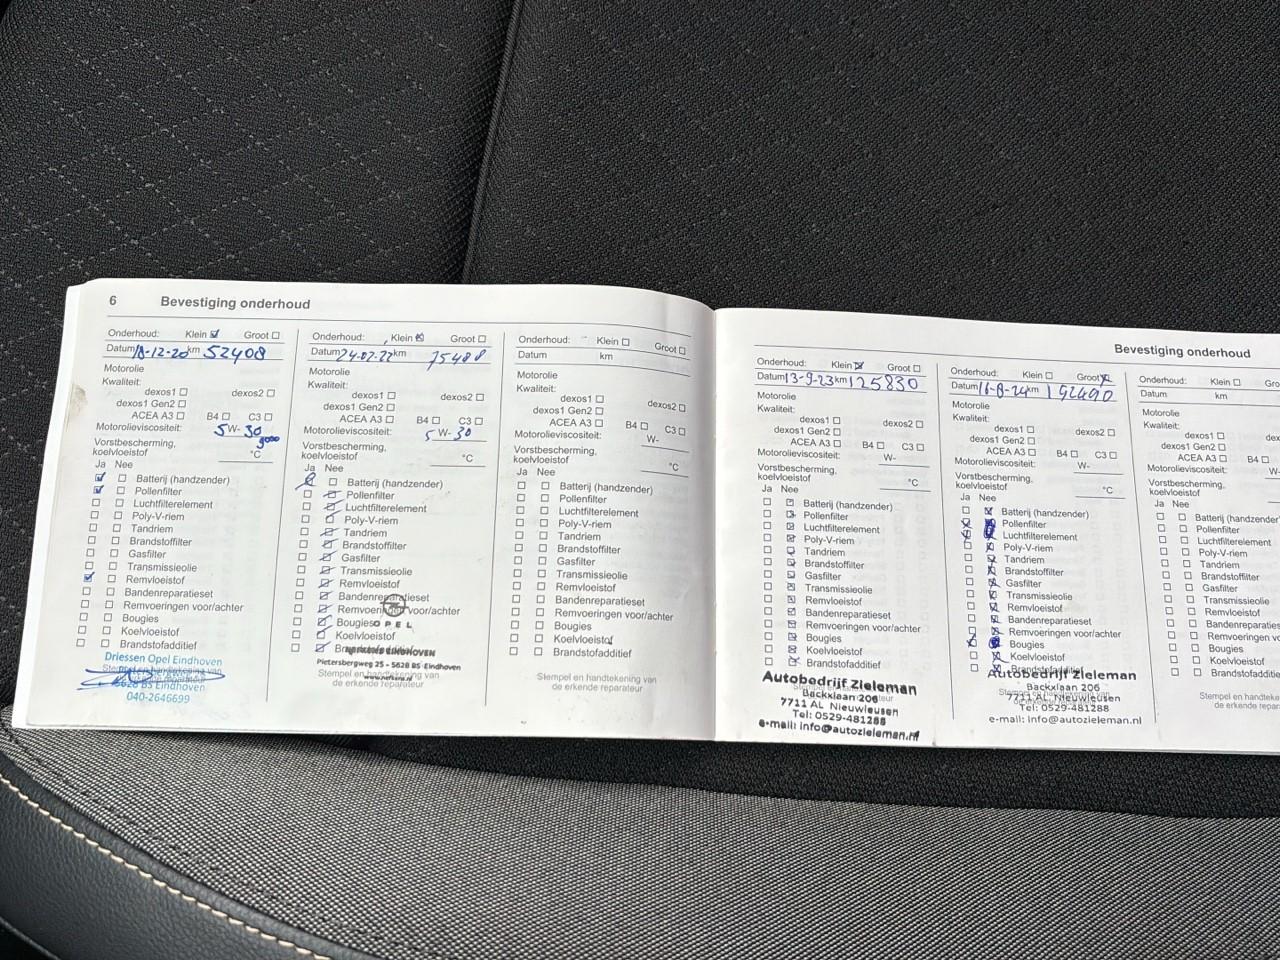 6 Bevestiging onderhoud
Onderhoud: Klein Groot
Datum 18-12-20 km 52408
Motorolie
Kwaliteit:
dexos1 dexos2
dexos1 Gen2
ACEA A3 B4 C3
Motorolieviscositeit: 5 W- 30
Vorstbescherming, koelvloeistof °C
Ja Nee
Batterij (handzender)
Pollenfilter
Luchtfilterelement
Poly-V-riem
Tandriem
Brandstoffilter
Gasfilter
Transmissieolie
Remvloeistof
Bandenreparatieset
Remvoeringen voor/achter
Bougies
Koelvloeistof
Brandstofadditief
Driessen Opel Eindhoven
5628 BS Eindhoven
040-2646699
Onderhoud: Klein Groot
Datum 24-02-22 km 75488
Motorolie
Kwaliteit:
dexos1 dexos2
dexos1 Gen2
ACEA A3 B4 C3
Motorolieviscositeit: 5 W- 30
Vorstbescherming, koelvloeistof °C
Ja Nee
Batterij (handzender)
Pollenfilter
Luchtfilterelement
Poly-V-riem
Tandriem
Brandstoffilter
Gasfilter
Transmissieolie
Remvloeistof
Bandenreparatieset
Remvoeringen voor/achter
Bougies
OPEL
Koelvloeistof
EINDHOVEN
Pietersbergweg 25 - 5628 BS Eindhoven
Stempel en handtekening van
de erkende reparateur
Onderhoud: Klein Groot
Datum km
Motorolie
Kwaliteit:
dexos1 dexos2
dexos1 Gen2
ACEA A3 B4 C3
Motorolieviscositeit: W-
Vorstbescherming, koelvloeistof °C
Ja Nee
Batterij (handzender)
Pollenfilter
Luchtfilterelement
Poly-V-riem
Tandriem
Brandstoffilter
Gasfilter
Transmissieolie
Remvloeistof
Bandenreparatieset
Remvoeringen voor/achter
Bougies
Koelvloeistof
Brandstofadditief
Stempel en handtekening van
de erkende reparateur
Bevestiging onderhoud
Onderhoud: Klein Groot
Datum 13-9-23 km 125830
Motorolie
Kwaliteit:
dexos1 dexos2
dexos1 Gen2
ACEA A3 B4 C3
Motorolieviscositeit: W-
Vorstbescherming, koelvloeistof °C
Ja Nee
Batterij (handzender)
Pollenfilter
Luchtfilterelement
Poly-V-riem
Tandriem
Brandstoffilter
Gasfilter
Transmissieolie
Remvloeistof
Bandenreparatieset
Remvoeringen voor/achter
Bougies
Koelvloeistof
Brandstofadditief
Autobedrijf Zieleman
Backxlaan 206
7711 AL Nieuwleusen
Tel: 0529-481288
e-mail: info@autozieleman.nl
Onderhoud: Klein Groot
Datum 16-8-24 km 142490
Motorolie
Kwaliteit:
dexos1 dexos2
dexos1 Gen2
ACEA A3 B4 C3
Motorolieviscositeit: W-
Vorstbescherming, koelvloeistof °C
Ja Nee
Batterij (handzender)
Pollenfilter
Luchtfilterelement
Poly-V-riem
Tandriem
Brandstoffilter
Gasfilter
Transmissieolie
Remvloeistof
Bandenreparatieset
Remvoeringen voor/achter
Bougies
Koelvloeistof
Brandstofadditief
Autobedrijf Zieleman
Backxlaan 206
7711 AL Nieuwleusen
Tel: 0529-481288
e-mail: info@autozieleman.nl
Onderhoud: Klein Gro
Datum km
Motorolie
Kwaliteit:
dexos1 dex
dexos1 Gen2
ACEA A3 B4
Motorolieviscositeit: W-
Vorstbescherming, koelvloeistof
Ja Nee
Batterij (handzender
Pollenfilter
Luchtfilterelement
Poly-V-riem
Tandriem
Brandstoffilter
Gasfilter
Transmissieolie
Remvloeistof
Bandenreparatiese
Remvoeringen v
Bougies
Koelvloeistof
Brandstofadditie
Stempel en handteke
de erkende repar